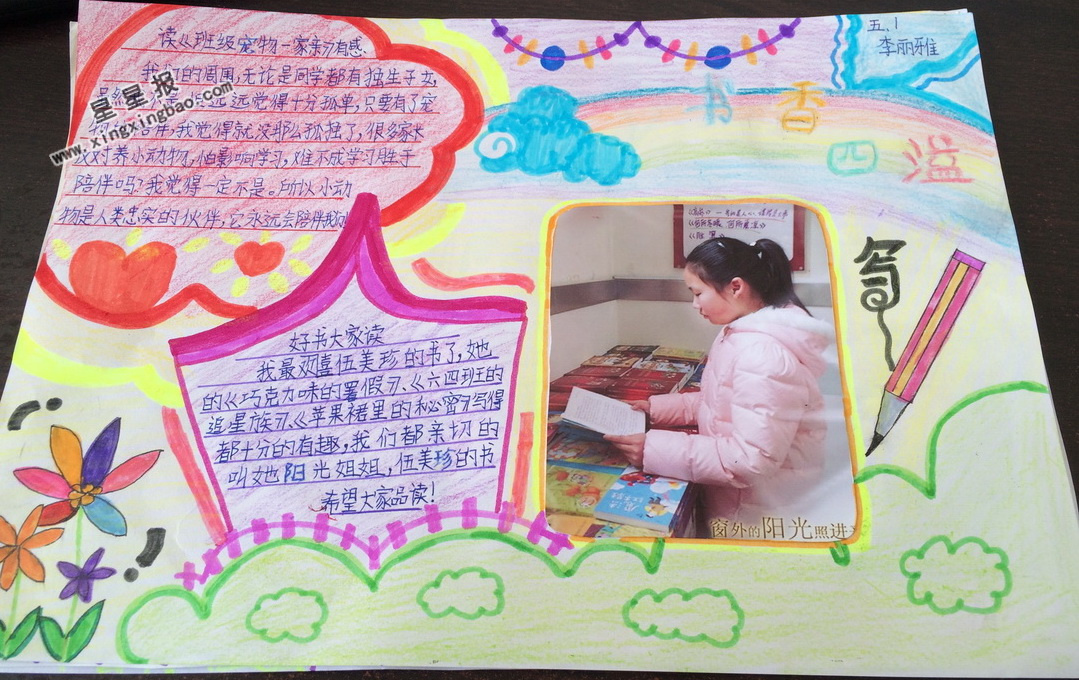 读《班级宠物一家亲》有感
我们的周围,无论是同学都有独生子女,
远远觉得十分孤单,只要有了宠
我觉得就没那么孤独了,很多家长
反对养小动物,怕影响学习,难不成学习胜于
陪伴吗?我觉得一定不是。所以小动
物是人类忠实的伙伴,它永远会陪伴我们
星星报
www.xingxingbao.com
五、1
李丽雅
书香四溢
好书大家读
我最欢喜伍美珍的书了,她
的《巧克力味的暑假》、《六四班的
追星族》、《苹果裙里的秘密》写得
都十分的有趣,我们都亲切的
叫她阳光姐姐,伍美珍的书
希望大家品读!
写
窗外的阳光照进